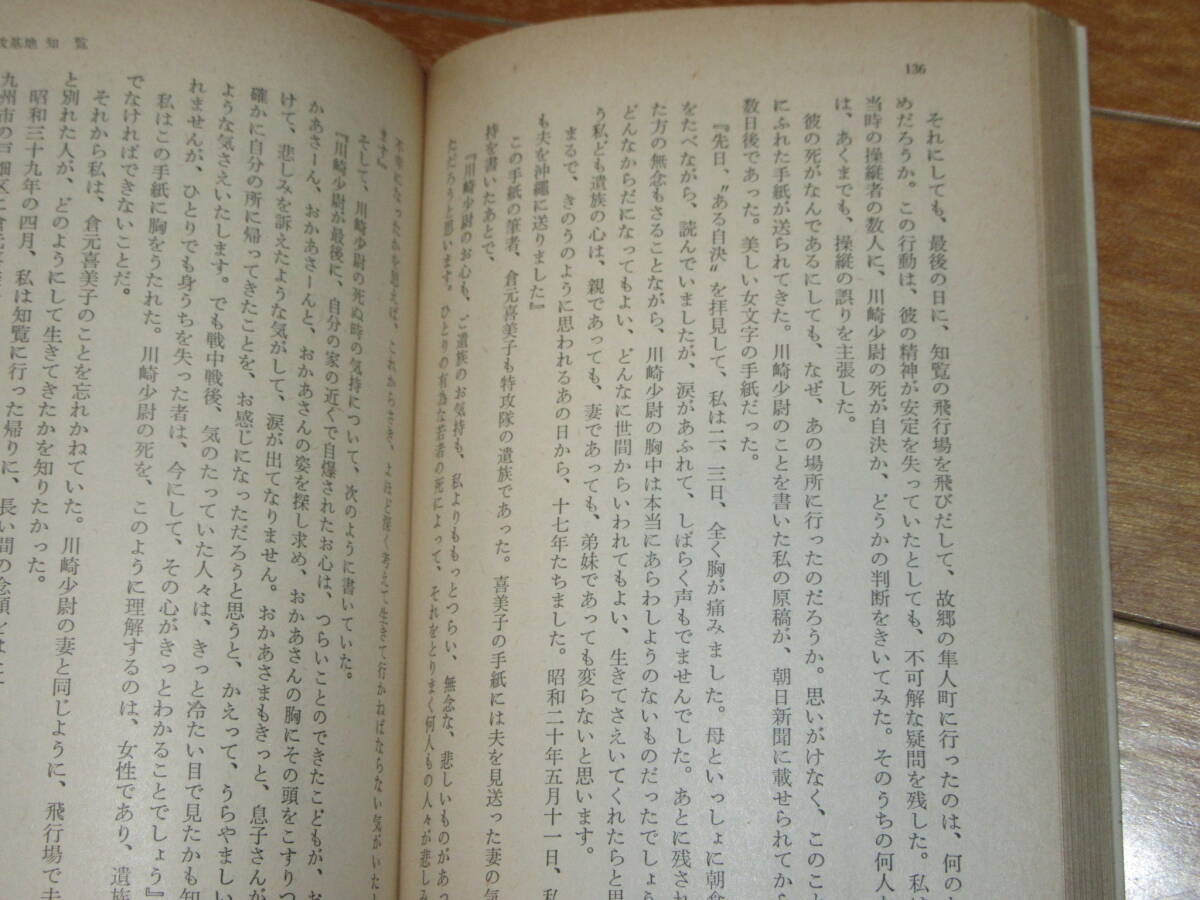 136
それにしても、最後の日に、知覧の飛行場を飛びだして、故郷の隼人町に行ったのは、何の
めだろうか。この行動は、彼の精神が安定を失っていたとしても、不可解な疑問を残した。私
当時の操縦者の数人に、川崎少尉の死が自決か、どうかの判断をきいてみた。そのうちの何人
は、あくまでも、操縦の誤りを主張した。
彼の死がなんであるにしても、なぜ、あの場所に行ったのだろうか。思いがけなく、このこと
にふれた手紙が送られてきた。川崎少尉のことを書いた私の原稿が、朝日新聞に載せられてから
数日後であった。美しい女文字の手紙だった。
『先日、〝ある自決〟を拝見して、私は二、三日、全く胸が痛みました。母といっしょに朝食
をたべながら、読んでいましたが、涙があふれて、しばらく声もでませんでした。あとに残され
た方の無念もさることながら、川崎少尉の胸中は本当にあらわしようのないものだったでしょう
どんなからだになってもよい、どんなに世間からいわれてもよい、生きてさえいてくれたらと思
う私ども遺族の心は、親であっても、妻であっても、弟妹であっても変らないと思います。
まるで、きのうのように思われるあの日から、十七年たちました。昭和二十年五月十一日、私
も夫を沖縄に送りました』
この手紙の筆者、倉元喜美子も特攻隊の遺族であった。喜美子の手紙には夫を見送った妻の気
持を書いたあとで、
『川崎少尉のお心も、ご遺族のお気持も、私よりももっとつらい、無念な、悲しいものがあっ
ただろうと思います。ひとりの有為な若者の死によって、それをとりまく何人もの人々が悲しみ
不幸になったかを思えば、これからさき、よほど深く考えて生きて行かねばならない気がいたし
ます』
そして、川崎少尉の死ぬ時の気持について、次のように書いていた。
『川崎少尉が最後に、自分の家の近くで自爆されたお心は、つらいことのできたこどもが、お
かあさーん、おかあさーんと、おかあさんの姿を探し求め、おかあさんの胸にその頭をこすりつ
けて、悲しみを訴えたような気がして、涙が出てなりません。おかあさまもきっと、息子さんが
確かに自分の所に帰ってきたことを、お感じになっただろうと思うと、かえって、うらやましい
ような気さえいたします。でも戦中戦後、気のたっていた人々は、きっと冷たい目で見たかも知
れませんが、ひとりでも身うちを失った者は、今にして、その心がきっとわかることでしょう』
私はこの手紙に胸をうたれた。川崎少尉の死を、このように理解するのは、女性であり、遺族
でなければできないことだ。
それから私は、倉元喜美子のことを忘れかねていた。川崎少尉の妻と同じように、飛行場で夫
と別れた人が、どのようにして生きてきたかを知りたかった。
昭和三十九年の四月、私は知覧に行った帰りに、長い間の念願
九州市の戸畑区に倉元
基地 知覧